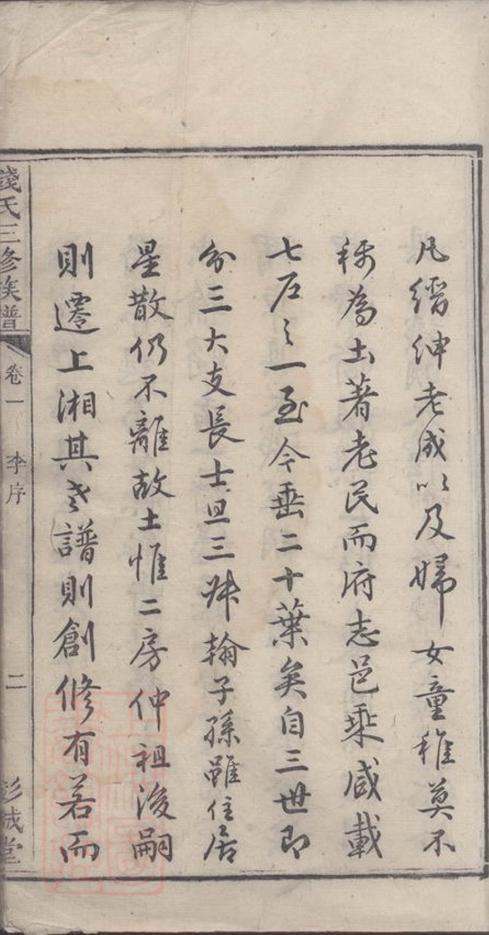 凡縉紳老成以及婦女童稚莫不
稱為土著老民而府志邑乘咸載
七石之一至今垂二十葉矣自三世即
分三大支長士旦三妹翰子孫雖住居
星散仍不離故土惟二房仲祖後嗣
則遷上湘其考譜則創修有若而
錢氏三修族譜
卷一
李序
二
彭城堂